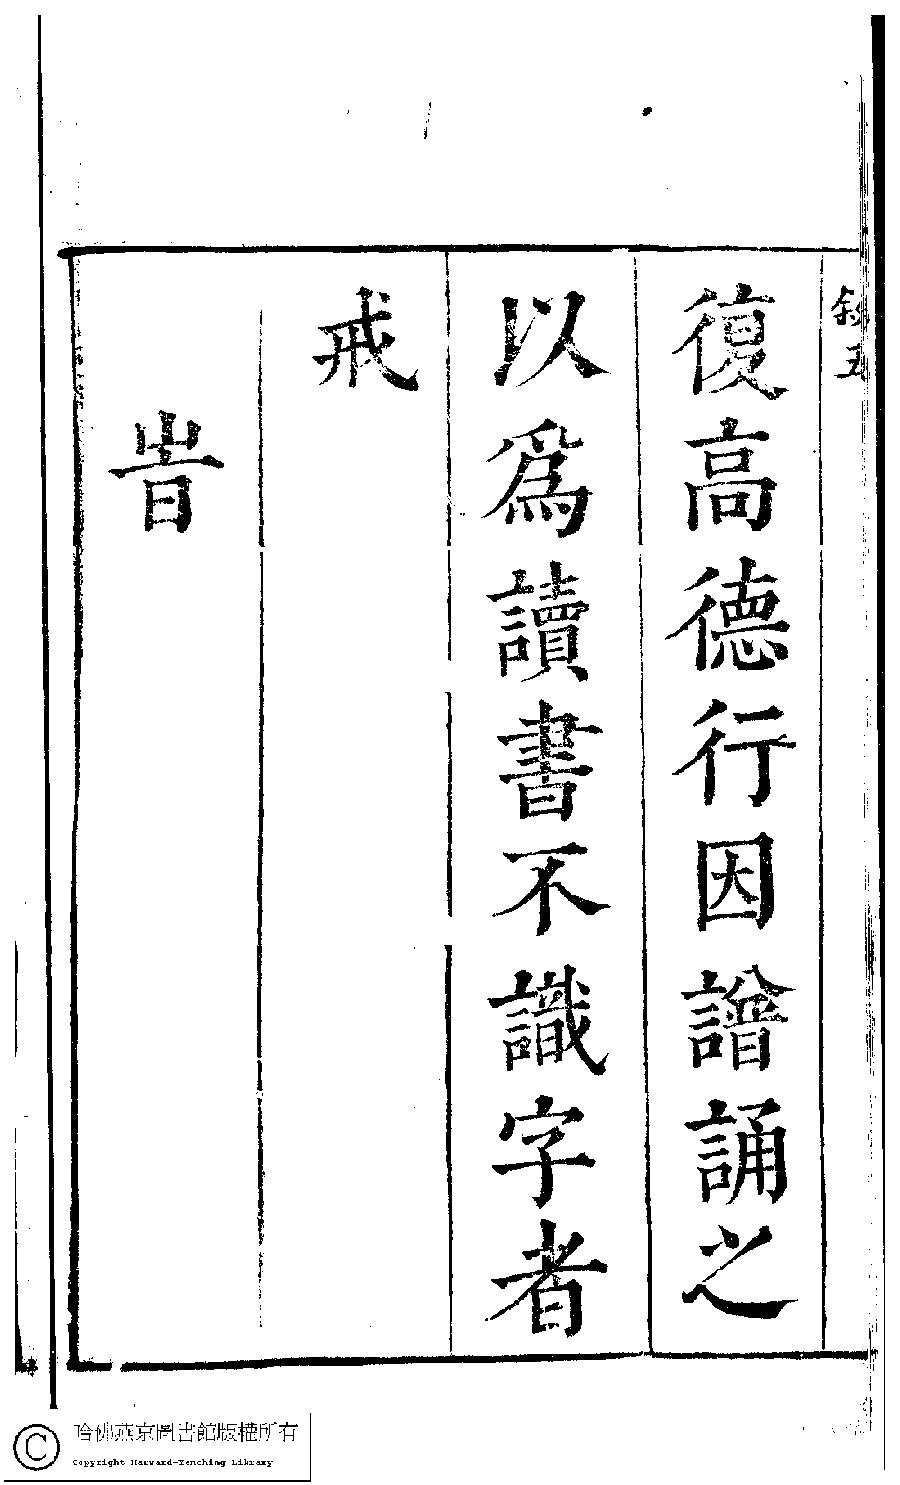 敘五
復高德行因譜誦之
以為讀書不識字者
戒
旹
哈佛燕京圖書館版權所有
Copyright Harvard-Yenching Library